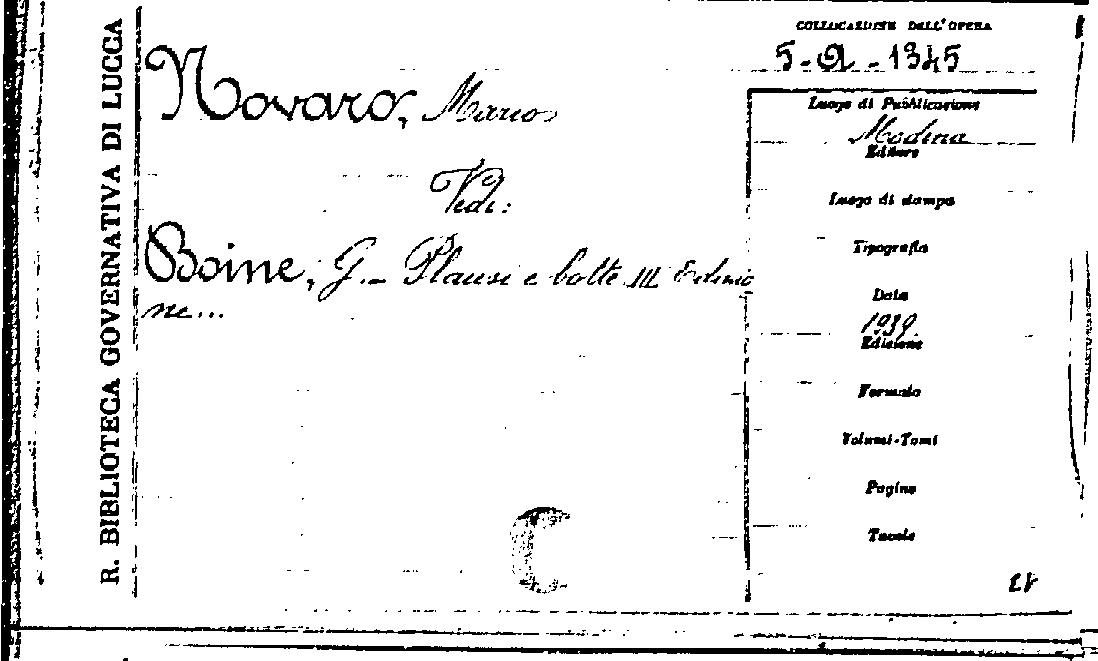 R. BIBLIOTECA GOVERNATIVA DI LUCCA
COLLOCAZIONE DELL'OPERA
5-Q-1345
Novaro, Mario
Vedi:
Boine, G. - Plausi e botte III Edizio
ne...
Luogo di Pubblicazione
Modena
Editore
Luogo di stampa
Tipografia
Data
1939
Edizione
Formato
Volumi-Tomi
Pagine
Tavole
C